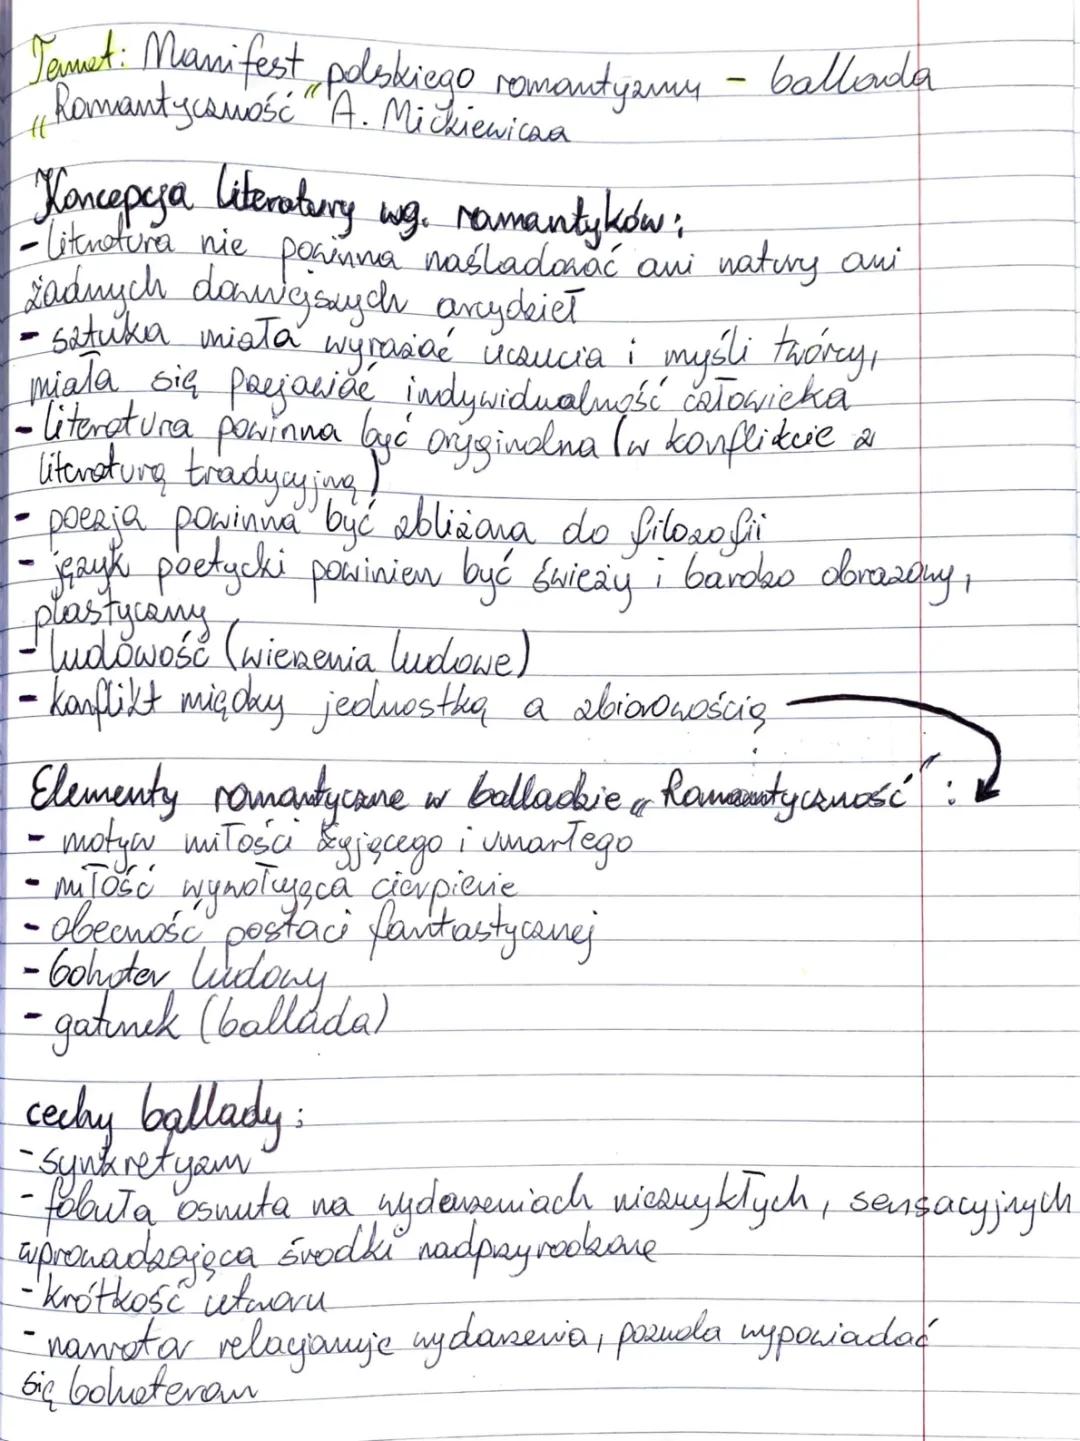 Temat: Manifest polskiego romantyzmu - ballada
"Romantyczność" A. Mickiewicza
Koncepcja literatury wg. romantyków:
- literatura nie powinna naśladować ani natury ani
żadnych dawniejszych arcydzieł
- sztuka miała wyrażać uczucia i myśli twórcy,
miała się przejawiać indywidualność człowieka
- literatura powinna być oryginalna (w konflikcie z
literaturą tradycyjną)
- poezja powinna być zbliżona do filozofii
- język poetycki powinien być świeży i bardzo obrazowy,
plastyczny
- ludowość (wierzenia ludowe)
- konflikt między jednostką a zbiorowością
Elementy romantyczne w balladzie „Romantyczność":
- motyw miłości żyjącego i umarłego
- miłość wywołująca cierpienie
- obecność postaci fantastycznej
- bohater ludowy
- gatunek (ballada)
cechy ballady:
- synkretyzm
- fabuła osnuta na wydarzeniach niezwykłych, sensacyjnych
wprowadzająca środki nadprzyrodzone
- krótkość utworu
- narrator relacjonuje wydarzenia, pozwala wypowiadać
się bohaterom